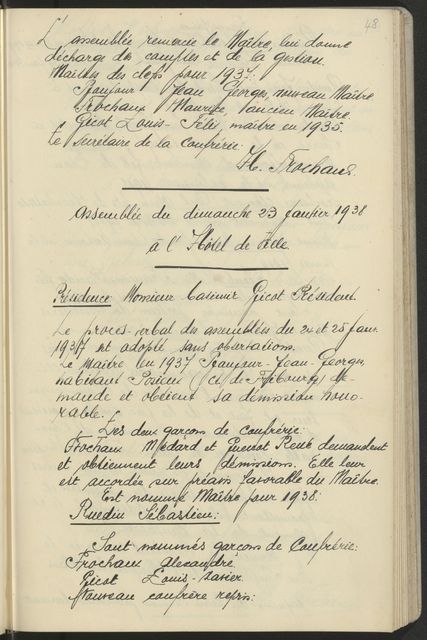 48
L'assemblée remercie le Maître, lui donne
décharge des comptes et de la gestion.
Maîtres des clefs pour 1937:
Ranjour Jean Georges, nouveau Maître.
Frochaux Maurice, ancien Maître.
Gicot Louis-Félix, maître en 1935.
Le Secrétaire de la Confrérie:
H. Frochaux.
Assemblée du dimanche 23 janvier 1938
à l'Hôtel de ville
Présidence Monsieur Casimir Gicot Président.
Le procès-verbal des assemblées du 24 et 25 janv.
1937 est adopté sans observations.
Le Maître en 1937 Jean-Georges,
habitant (ct. de Fribourg) de-
mande et obtient sa démission hono-
rable.
Les deux garçons de confrérie:
Frochaux Médard et Gueno René demandent
et obtiennent leurs démissions. Elle leur
est accordée sur préavis favorable du Maître.
Est nommé Maître pour 1938:
Ruedin Sébastien:
Sont nommés garçons de Confrérie:
Frochaux Alexandre,
Gicot Louis-Xavier.
Nouveau confrère repris: